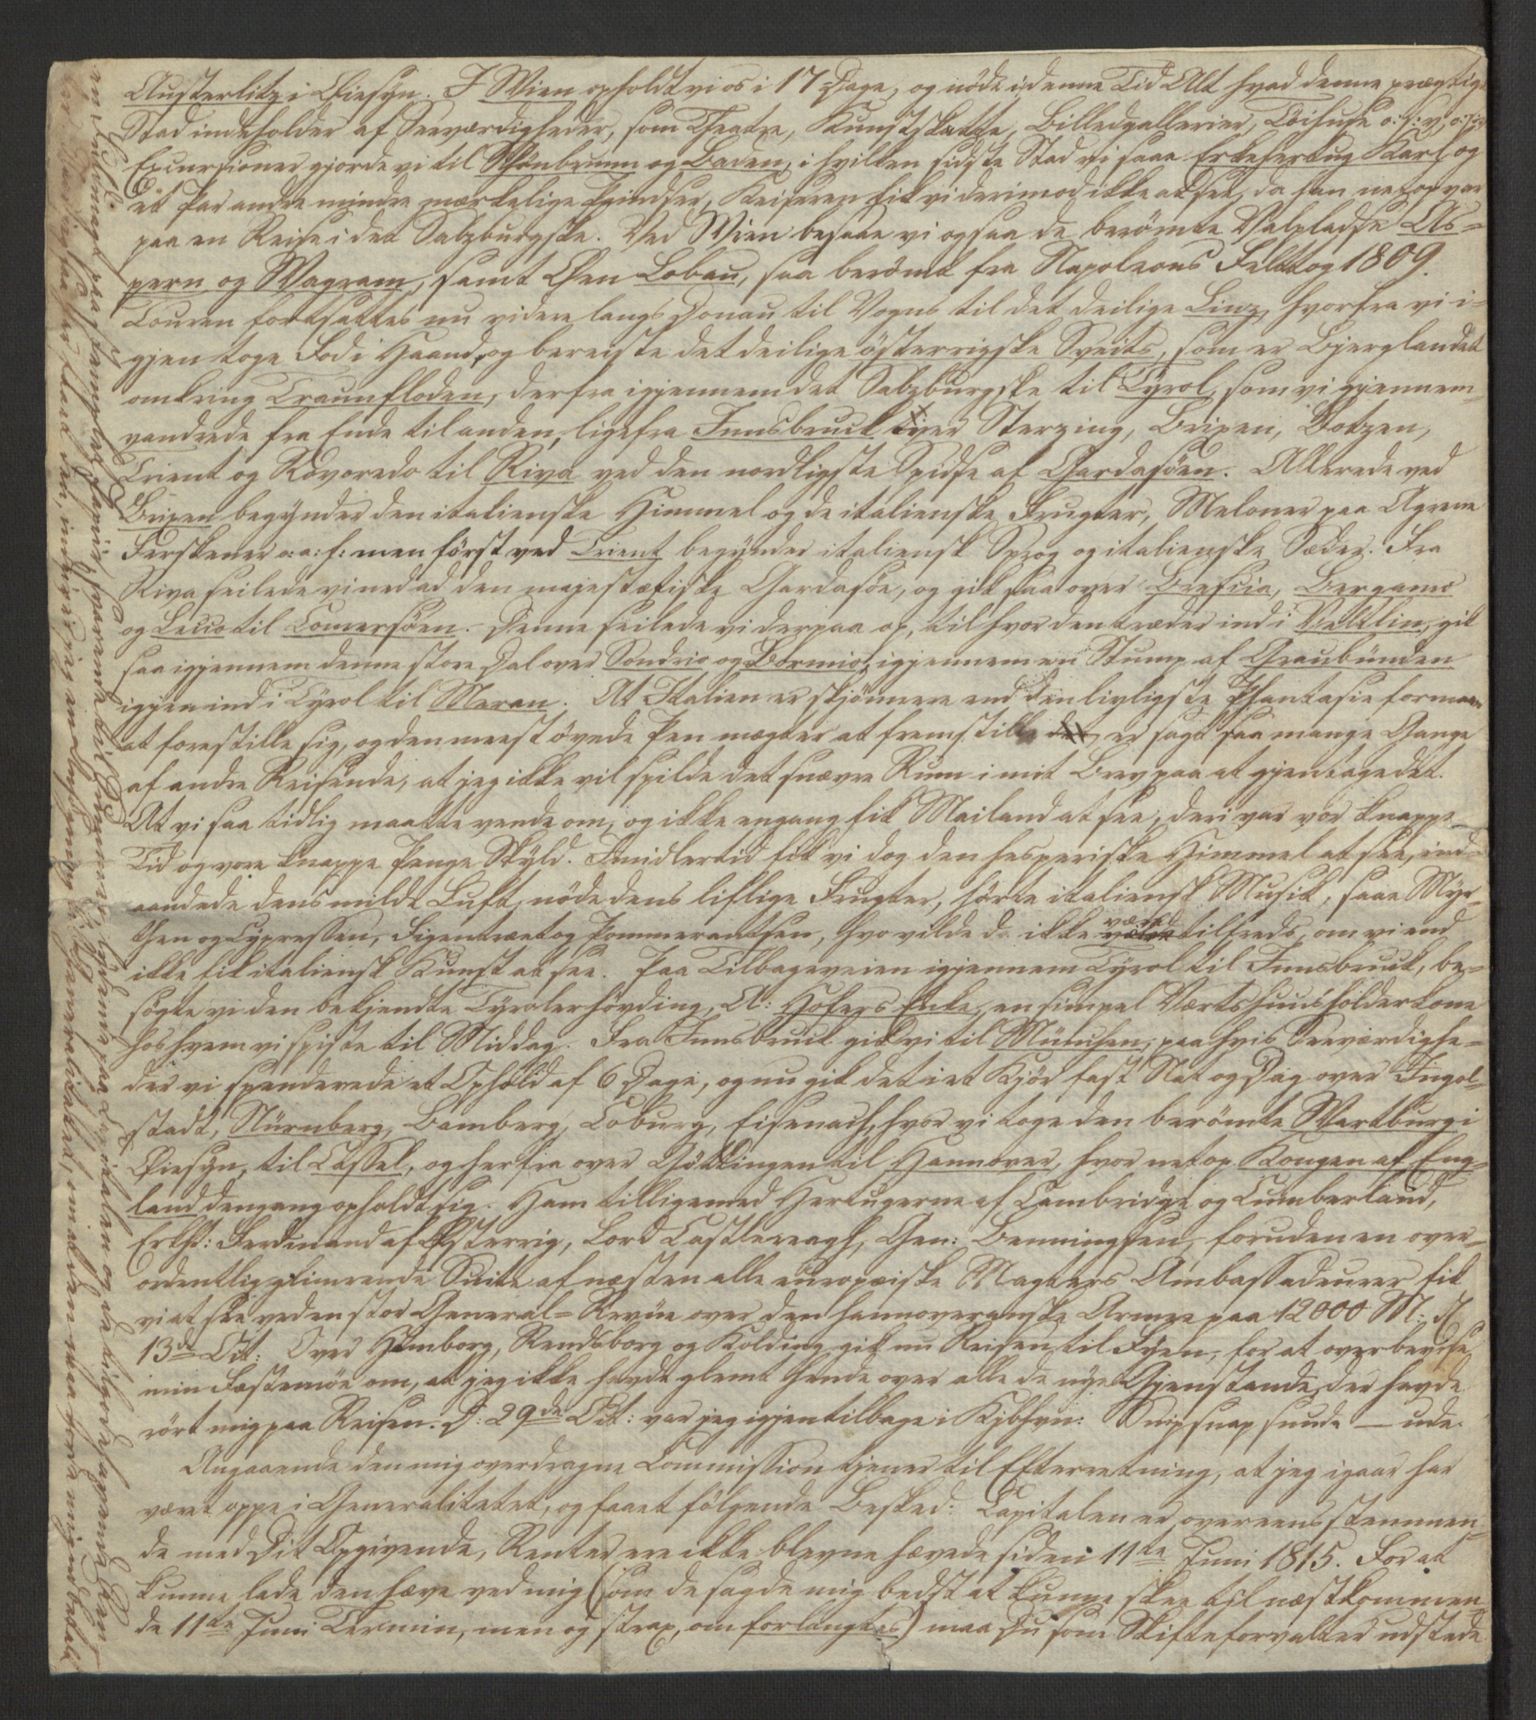 Austerlitz i Øiesyn. I Wien opholdt vi os i 17 Dage, og nöde i denne Tid Alt hvad denne prægtige
Stad indeholder af Seeværdigheder, som Theatre, Kunstskatte, Billedgallerier, Töihuse o: s: v:,
Excursioner gjorde vi til Schönbrunn og Baden, i hvilken sidste Stad vi saae Erkehertug Karl og
et Par andre mindre mærkelige Prindser, Keiseren fik vi derimod ikke at see, da han netop var
paa en Reise i det Salzburgske. Ved Wien besaae vi ogsaa de berömte Valpladse As=
pern og Wagram, samt Öen Lobau, saa berömt fra Napoleons Felttog 1809.
Touren fortsattes nu videre langs Donau til Vogns til det deilige Linz, hvorfra vi i=
gjen toge Fod i Haand, og bereiste det deilige österrigske Sveits, som er Bjerglandet
omkring Traunfloden, derfra igjennem det Salzburgske til Tyrol, som vi gjennem=
vandrede fra Ende til anden, ligefra Innsbruck over Sterzing, Brixen, Botzen,
Trient og Rovoredo til Riva ved den nordligste Spidse af Gardasöen. Allerede ved
Brixen begynder den italienske Himmel og de italienske Frugter, Meloner paa Agrene
Ferskener o: a: f: men först ved Trient begynder italiensk Sprog og italienske Sæder. Fra
Riva seilede vi ned ad den majestætiske Gardasöe, og gik saa over Brescia, Bergamo
og Lecco til Comersöen. Denne seilede vi derpaa op, til hvor den træder ind i Veltlin, gik
saa igjennem denne store Dal over Sondrio og Bormio, igjennem en Stump af Graubünden
igjen ind i Tyrol til Meran. At Italien er skjönnere end den livligste Phantasie formaaer
at forestille sig, og den meest övede Pen mægter at fremstille er sagt saa mange Gange
af andre Reisende, at jeg ikke vil spilde det snævre Rum i mit Brev paa at gjentage det.
At vi saa tidlig maatte vende om, og ikke engang fik Mailand at see, deri var vor knappe
Tid og vore knappe Penge Skyld. Imidlertid fik vi dog den hesperiske Himmel at see, ind=
aandede dens milde Luft, nöde dens liflige Frugter, hörte italiensk Musik, saae Myr=
then og Cypressen, Figentræet og Pommerantsen, hvo vilde da ikke være tilfreds, om vi end
ikke fik italiensk Kunst at see. Paa Tilbageveien igjennem Tyrol til Innsbruck, be=
sögte vi den bekjendte Tyrolerhövding, A: Hofers Enke, en simpel Værtshuusholderkone
hos hvem vi spiste til Middag. Fra Innsbruck gik vi til München, paa hvis Seeværdighe=
der vi spenderede et Ophold af 6 Dage, og nu gik det i et Kjör fast Nat og Dag over Ingol=
stadt, Nürnberg, Bamberg, Coburg, Eisenach, hvor vi toge den berömte Wartburg i
Öiesyn, til Cassel, og herfra over Göttingen til Hannover, hvor netop Kongen af Eng=
land dengang opholdt sig. Ham tilligemed Hertugerne af Cambridge og Cumberland,
Erkh: Ferdinand af Österrig, Lord Castlereagh, Gen: Benningsen, foruden en over=
ordentlig glimrende Suite af næsten alle europæiske Magters Ambassadeurer fik
vi at see ved en stor General=Revüe over den hannoveranske Armee paa 12000 M: d
13de Oct: Over Hamborg, Rendsborg og Kolding gik nu Reisen til Fyen, for at overbevise
min Fæstemöe om, at jeg ikke havde glemt hende over alle de nye Gjenstande, der havde
rört mig paa Reisen. D: 29de Oct: var jeg igjen tilbage i Kjbhvn: Snip snap snude — ude.
Angaaende den mig overdragne Commission tjener til Efterretning, at jeg igaar har
været oppe i Generalitetet, og faaet fölgende Besked: Capitalen er overeensstemmen=
de med Dit Opgivende, Renter ere ikke blevne hævede siden 11te Juni 1815. For at
kunne lade den hæve ved mig (som de sagde mig bedst at kunne skee til næstkommen=
de 11te Juni Termin, men og strax, om forlanges) maa Du som Skifteforvalter udstede